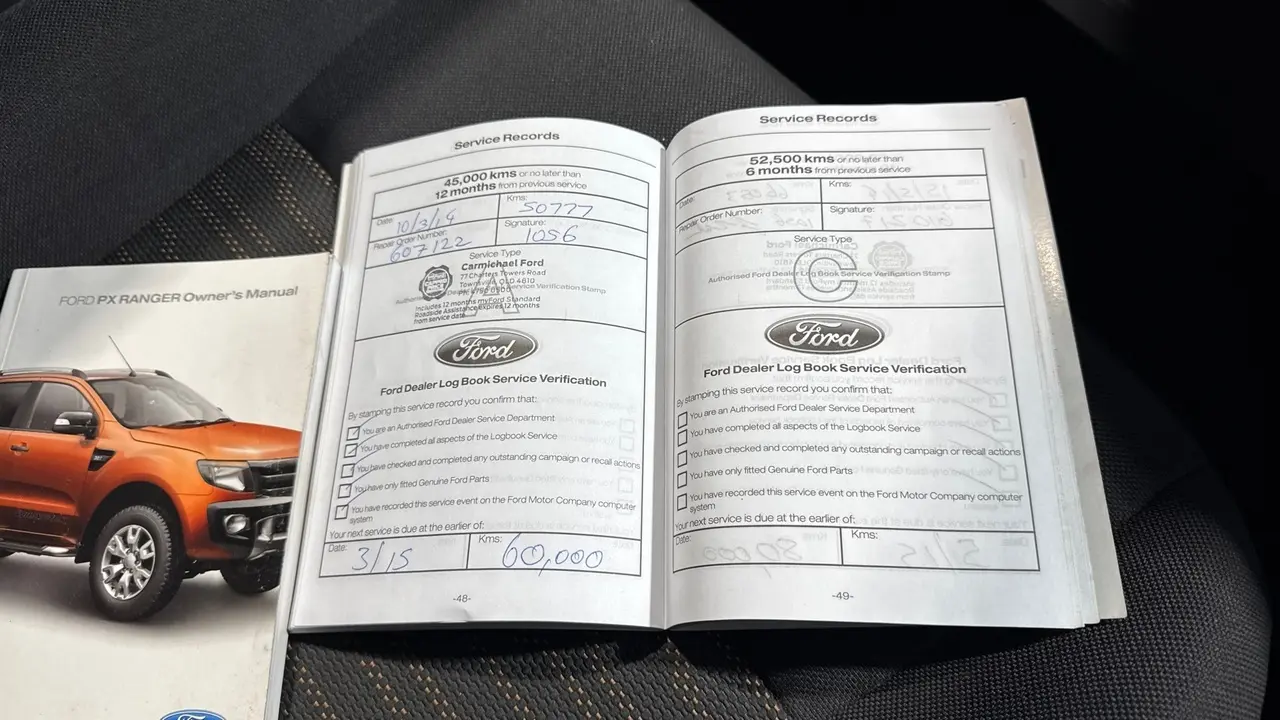 FORD PX RANGER Owner's Manual
Service Records
45,000 kms or no later than
12 months from previous service
Date: 10/3/14
Kms: 50777
Repair Order Number: 607122
Signature: 1056
Service Type
Carmichael Ford
77 Charters Towers Road
Townsville QLD 4810
Includes 12 months myFord Standard
Roadside Assistance expires 12 months
from service date
A
Ford
Ford Dealer Log Book Service Verification
By stamping this service record you confirm that:
You are an Authorised Ford Dealer Service Department
You have completed all aspects of the Logbook Service
You have checked and completed any outstanding campaign or recall actions
You have only fitted Genuine Ford Parts
You have recorded this service event on the Ford Motor Company computer
system
Your next service is due at the earlier of:
Date: 3/15
Kms: 60,000
-48-
Service Records
52,500 kms or no later than
6 months from previous service
Date:
Kms:
Repair Order Number:
Signature:
Service Type
C
Authorised Ford Dealer Log Book Service Verification Stamp
Ford
Ford Dealer Log Book Service Verification
By stamping this service record you confirm that:
You are an Authorised Ford Dealer Service Department
You have completed all aspects of the Logbook Service
You have checked and completed any outstanding campaign or recall actions
You have only fitted Genuine Ford Parts
You have recorded this service event on the Ford Motor Company computer
system
Your next service is due at the earlier of:
Date:
Kms:
-49-